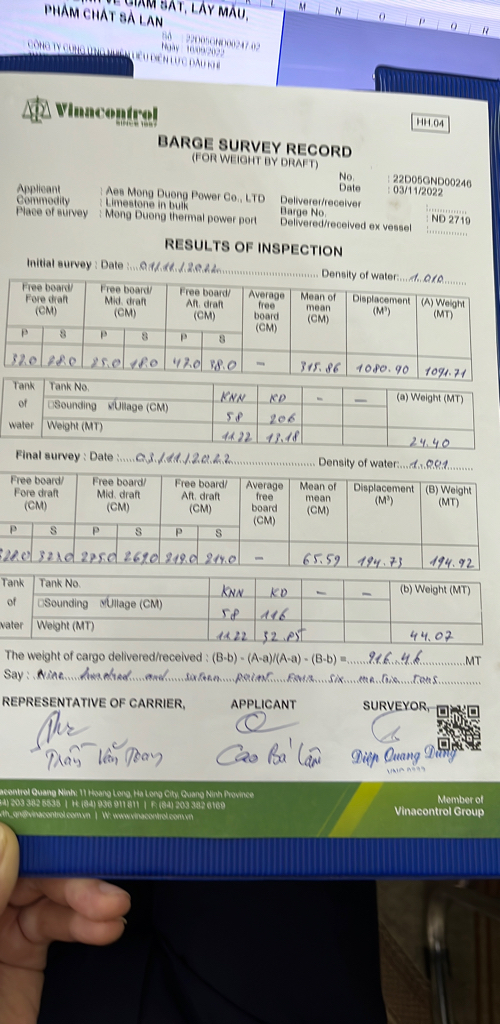 PHẨM CHẤT SÀ LAN
Số : 22D05GND00247-02
Ngày : 16/09/2022
CÔNG TY CUNG ỨNG NHIÊN LIỆU ĐIỆN LỰC DẦU KHÍ
M N O P Q R
Vinacontrol
SINCE 1957
HH.04
BARGE SURVEY RECORD
(FOR WEIGHT BY DRAFT)
No. : 22D05GND00246
Date : 03/11/2022
Applicant : Aes Mong Duong Power Co., LTD Deliverer/receiver :
Commodity : Limestone in bulk Barge No. : NĐ 2719
Place of survey : Mong Duong thermal power port Delivered/received ex vessel :
RESULTS OF INSPECTION
Initial survey : Date : 01/11/2022 Density of water: 1.010
Free board/ Fore draft (CM) Free board/ Mid. draft (CM) Free board/ Aft. draft (CM) Average free board (CM) Mean of mean (CM) Displacement (M³) (A) Weight (MT)
P S P S P S
32.0 28.0 25.0 18.0 47.0 38.0 – 315.86 1080.90 1091.71
Tank of water Tank No. KNN KD – – (a) Weight (MT)
Sounding Ullage (CM) 58 206
Weight (MT) 11.22 13.18 24.40
Final survey : Date : 03/11/2022 Density of water: 1.001
Free board/ Fore draft (CM) Free board/ Mid. draft (CM) Free board/ Aft. draft (CM) Average free board (CM) Mean of mean (CM) Displacement (M³) (B) Weight (MT)
P S P S P S
328.0 323.0 275.0 269.0 219.0 214.0 – 65.59 194.73 194.92
Tank of water Tank No. KNN KD – – (b) Weight (MT)
Sounding Ullage (CM) 58 116
Weight (MT) 11.22 32.85 44.07
The weight of cargo delivered/received : (B-b) - (A-a)/(A-a) - (B-b) = 916.46 MT
Say : Nine hundred and sixteen point four six metric tons
REPRESENTATIVE OF CARRIER, APPLICANT SURVEYOR,
Trần Văn Toan Cao Bá Lân Diệp Quang Dũng
Vinacontrol Quang Ninh: 11 Hoang Long, Ha Long City, Quang Ninh Province
(84) 203 382 5535 | H: (84) 936 911 811 | F: (84) 203 382 6169
vth_qn@vinacontrol.com.vn | W: www.vinacontrol.com.vn
Member of
Vinacontrol Group